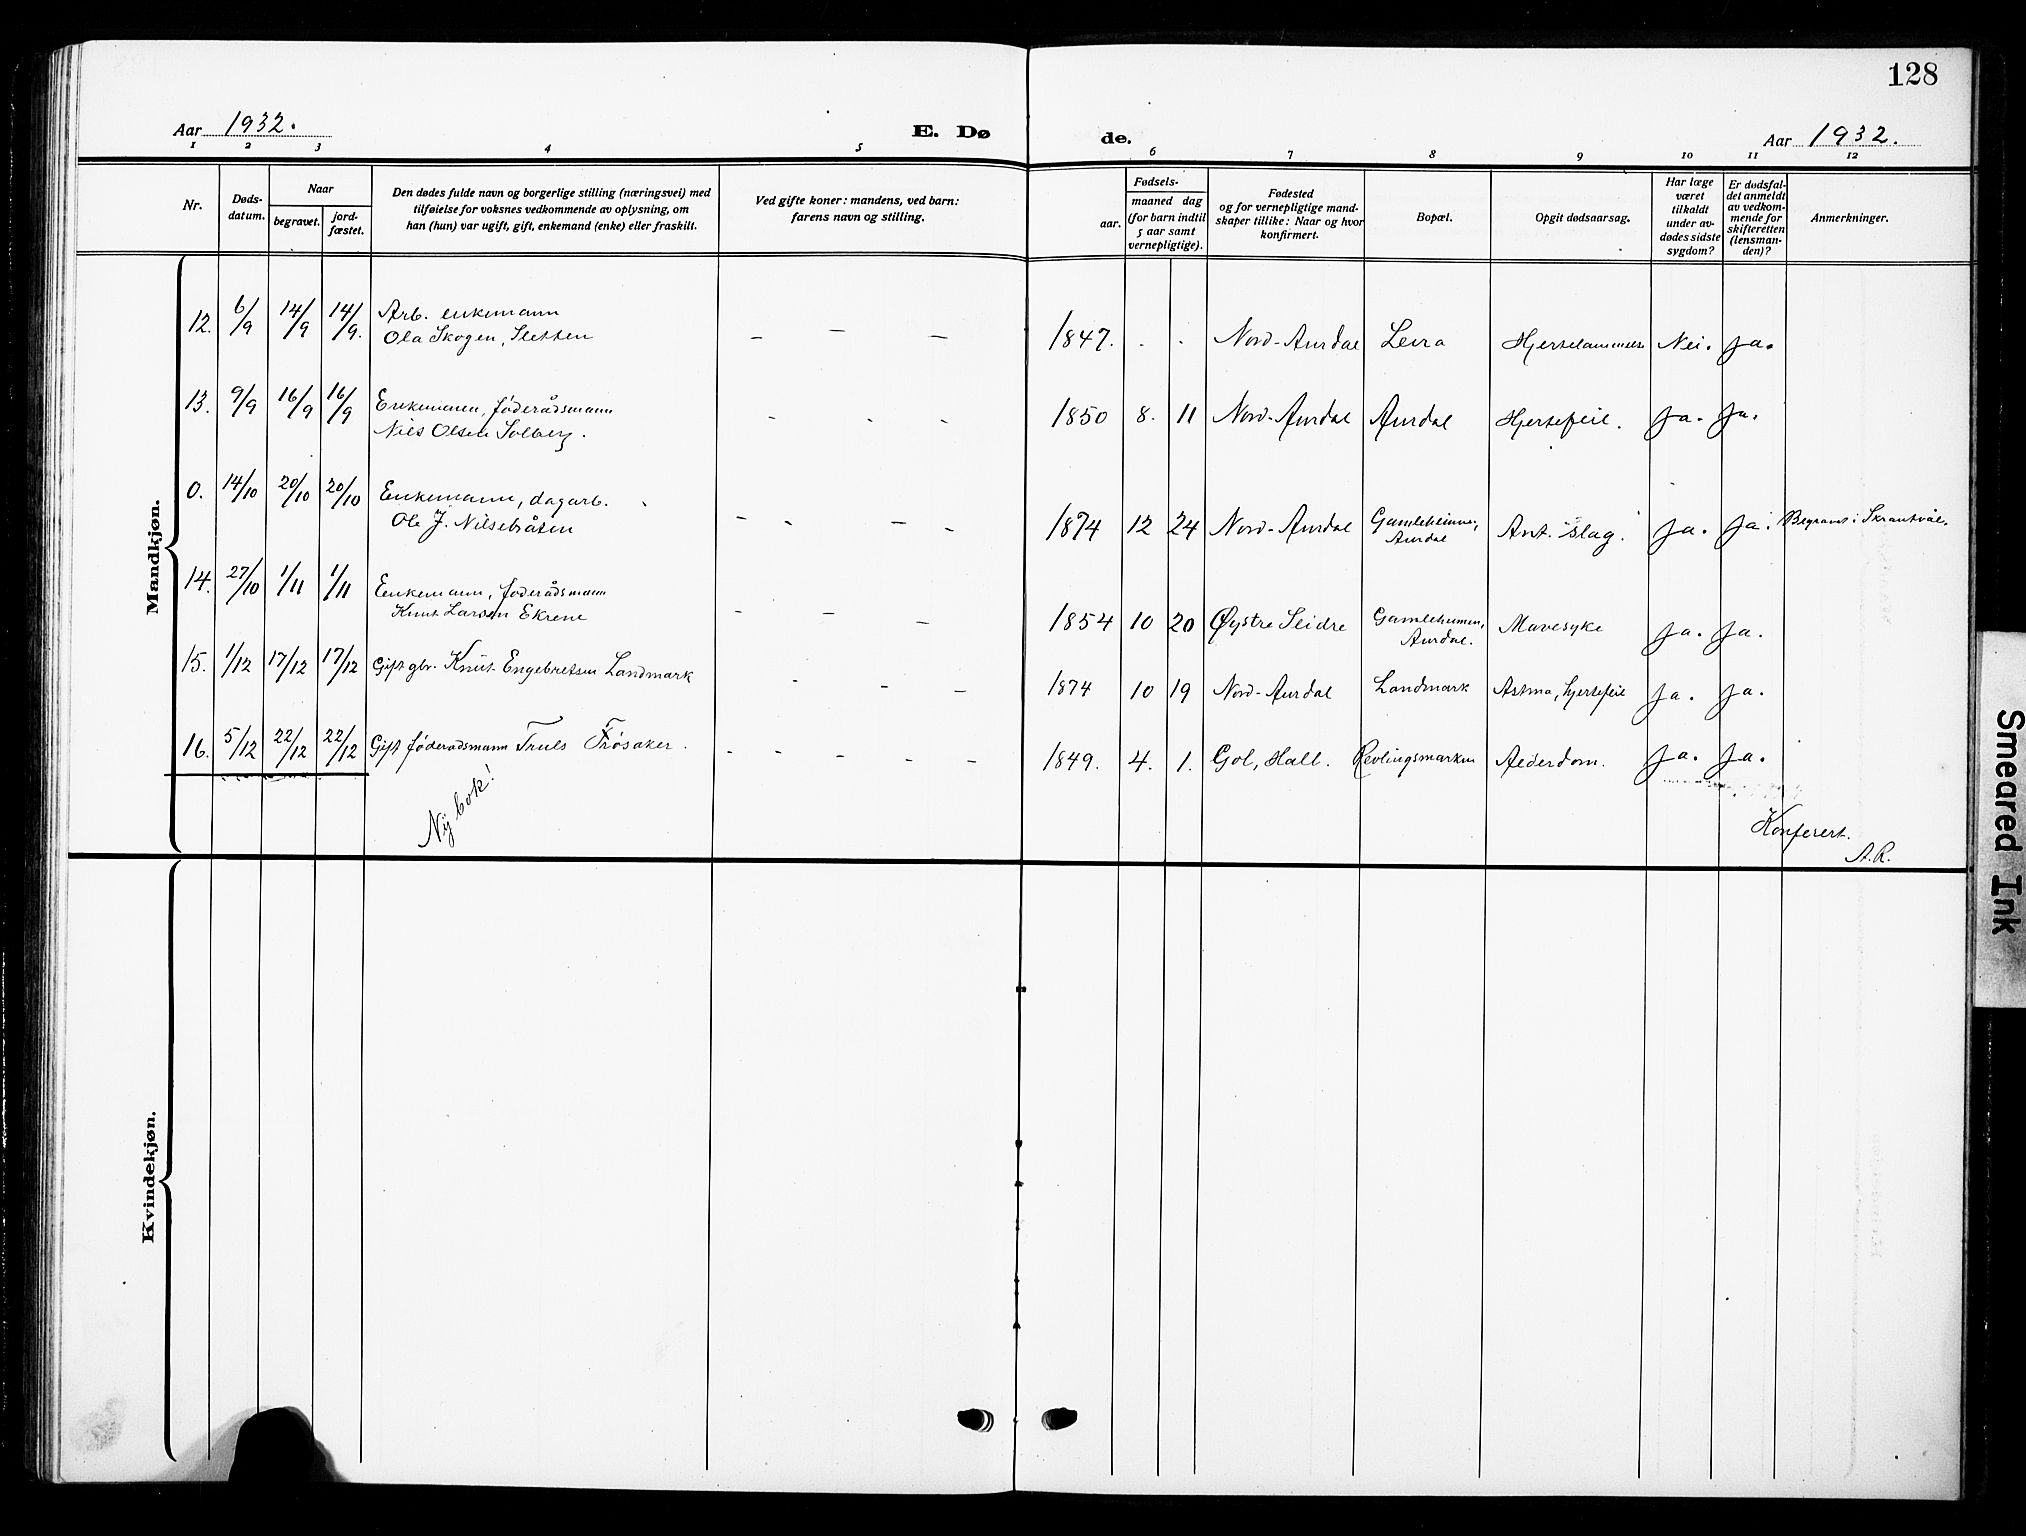 128
Aar 1932.
E. Dø
de.
Aar 1932.
1 2 3 4 5 6 7 8 9 10 11 12
Nr.
Døds-
datum.
Naar
begravet.
jord-
fæstet.
Den dødes fulde navn og borgerlige stilling (næringsvei) med
tilføielse for voksnes vedkommende av oplysning, om
han (hun) var ugift, gift, enkemand (enke) eller fraskilt.
Ved gifte koner: mandens, ved barn:
farens navn og stilling.
Fødsels-
aar.
maaned dag
(for barn indtil
5 aar samt
vernepligtige).
Fødested
og for vernepligtige mand-
skaper tillike: Naar og hvor
konfirmert.
Bopæl.
Opgit dødsaarsag.
Har læge
været
tilkaldt
under av-
dødes sidste
sygdom?
Er dødsfal-
det anmeldt
av vedkom-
mende for
skifteretten
(lensman-
den)?
Anmerkninger.
Mandkjøn.
12. 6/9 14/9 14/9. Arb. enkemann
Ola Skogen, Sletten
— — —
1847. . . Nord-Aurdal Leira Hjertelammelse Nei. Ja.
13. 9/9 16/9 16/9 Enkemann, føderådsmann
Nils Olsen Solberg.
- - -
1850 8. 11 Nord-Aurdal Aurdal Hjertefeil. Ja. Ja.
0. 14/10 20/10 20/10 Enkemann, dagarb.
Ole J. Nilsebråten
- - - -
1874 12 24 Nord-Aurdal Gamleheimen,
Aurdal
Ant. slag. Ja. Ja. Begravet i Skrautvål.
14. 27/10 1/11 1/11 Enkemann, føderådsmann
Knut Larsen Ekrene
- - -
1854 10 20 Øystre Slidre Gamleheimen,
Aurdal.
Mavesyke Ja. Ja.
15. 1/12 17/12 17/12 Gift gbr. Knut Engebretsen Landmark
- - -
1874 10 19 Nord-Aurdal Landmark Astma, hjertefeil Ja. Ja.
16. 5/12 22/12 22/12 Gift føderadsmann Truls Frøsaker.
- - - - -
1849. 4. 1. Gol, Hall. Revlingsmarken Alderdom. Ja. Ja.
Ny bok!
Konferert.
A.R.
Kvindekjøn.
Smeared Ink